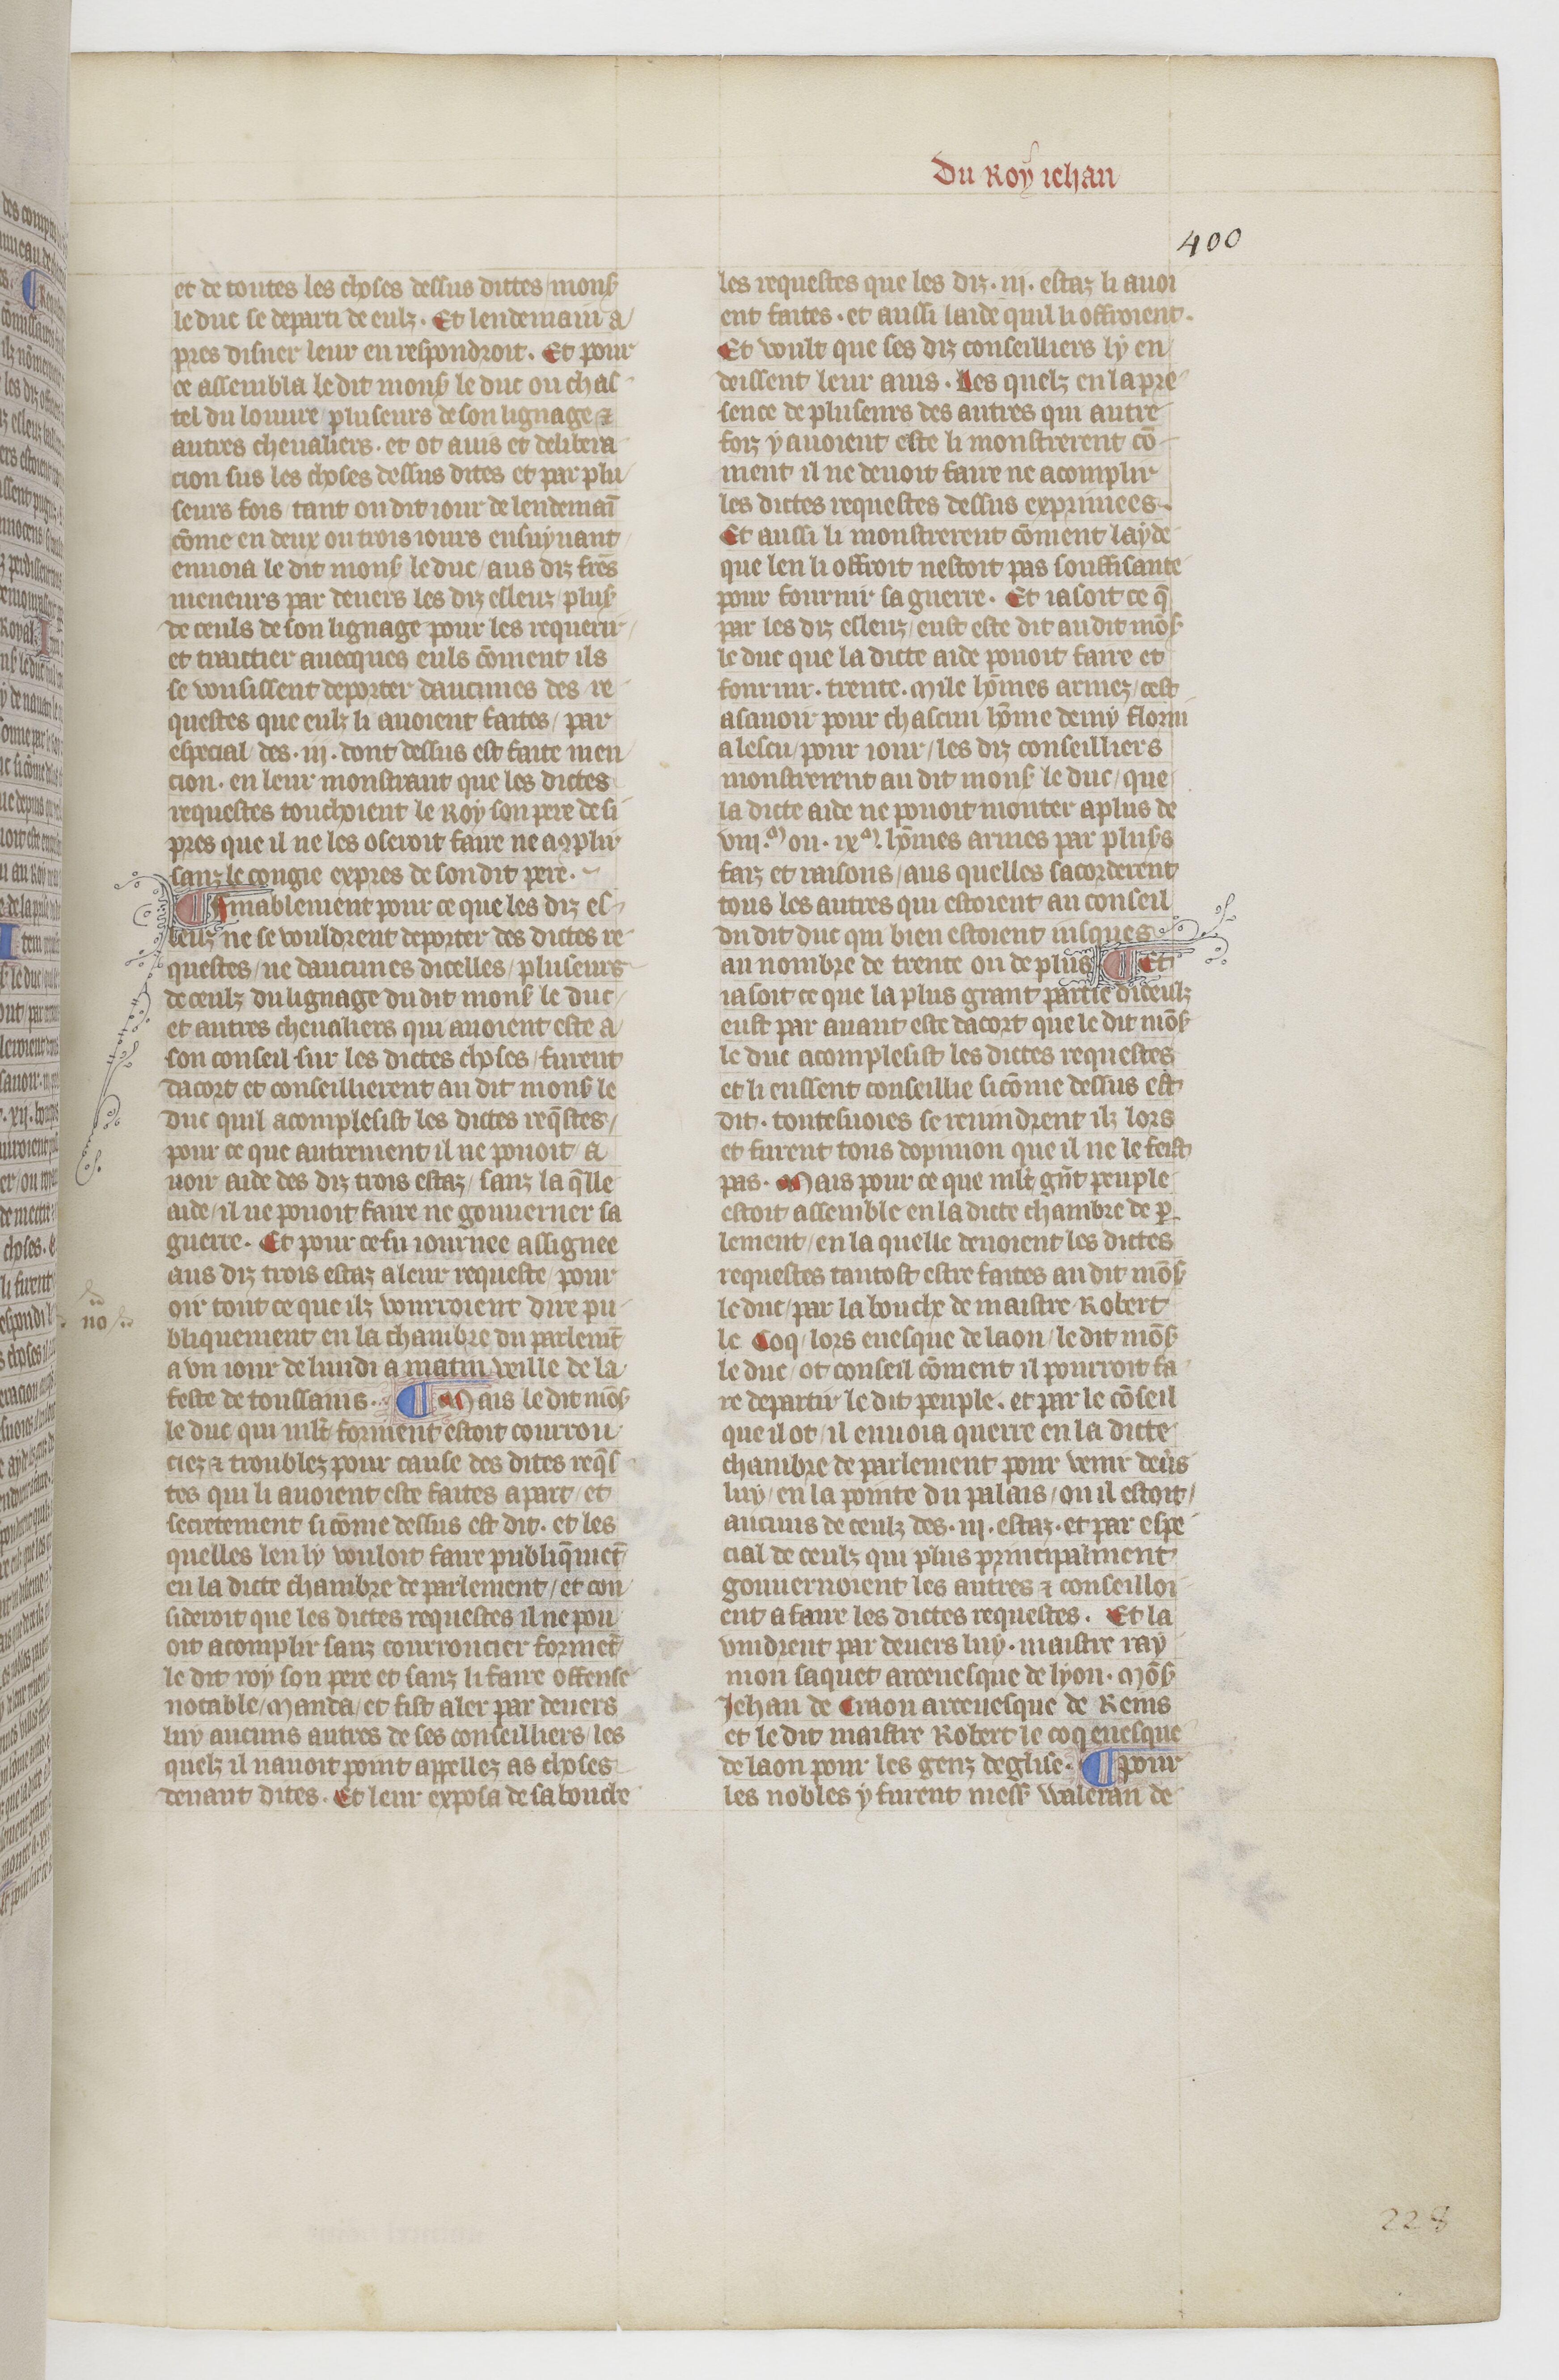 Du Roy iehan
400
et de toutes les choses dessus dittes / mons̃
le duc se departi de eulz. Et lendemain a
pres disner leur en respondroit. Et pour
ce assembla le dit mons̃ le duc ou chas
tel du louure / pluseurs de son lignage &
autres cheualiers. et ot auis et delibera
cion sus les choses dessus dites et par plu
seurs fois tant ou dit iour de lendemaī
cōme en deux ou trois iours ensuyuant
enuoia le dit mons̃ le duc / aus diz frēs
meneurs par deuers les diz esleuz / plus̃
de ceuls de son lignage pour les requerir
et traictier auecques euls cōment ils
se vousissent deporter daucunes des re
questes que eulz li auoient faites / par
especial / des .iii. dont dessus est faite men
cion. en leur monstrant que les dictes
requestes touchoient le Roy son pere de si
pres que il ne les oseroit faire ne acōplir
sanz le congie expres de son dit pere.
¶ Finablement pour ce que les diz es
leuz ne se vouldrent deporter des dictes re
questes / ne daucunes dicelles / pluseurs
de ceulz du lignage du dit mons̃ le duc /
et autres cheualiers qui auoient este a
son conseil sur les dictes choses / furent
dacort et conseillierent au dit mons̃ le
duc quil acomplesist les dictes req̄stes /
pour ce que autrement il ne pouoit a
uoir aide des diz trois estaz / sanz la q̄lle
aide / il ne pouoit faire ne gouuerner sa
guerre. Et pour ce fu iournee assignee
aus diz trois estaz a leur requeste / pour
oir tout ce que ilz vourroient dire pu
bliquement en la chambre du parlemt̄
a vn iour de lundi a matin veille de la
feste de toussains. ¶ Mais le dit mōs̃
le duc qui mlt̄ forment estoit courrou
ciez & troublez pour cause des dites req̄s
tes qui li auoient este faites a part / et
secretement si cōme dessus est dit. et les
quelles len ly vouloit faire publiq̄met̄
en la dicte chambre de parlement / et con
sideroit que les dictes requestes il ne pou
oit acomplir sanz courroucier formet̄
le dit roy son pere et sanz li faire offense
notable / Manda / et fist aler par deuers
luy aucuns autres de ses conseilliers / les
quelz il nauoit point appellez as choses
deuant dites. Et leur exposa de sa bouche
les requestes que les diz .iii. estaz li auoi
ent faites. et aussi laide quil li offroient.
Et voult que ses diz conseilliers ly en
deissent leur auis. Les quelz en la pre
sence de pluseurs des autres qui autre
foiz y auoient este li monstrerent cō
ment il ne deuoit faire ne acomplir
les dictes requestes dessus exprimees.
Et aussi li monstrerent cōment layde
que len li offroit nestoit pas souffisante
pour fournir sa guerre. Et ia soit ce q̄
par les diz esleuz / eust este dit au dit mōs̃
le duc que la dicte aide pouoit faire et
fournir. trente. Mile hōmes armez / cest
asauoir pour chascun hōme demy florin
a lescu / pour iour / les diz conseilliers
monstrerent au dit mons̃ le duc / que
la dicte aide ne pouoit monter a plus de
viii.ᴹ ou .ix.ᴹ hōmes armes par plus̃s
faiz et raisons / aus quelles sacorderent
tous les autres qui estoient au conseil
du dit duc qui bien estoient iusques
au nombre de trente ou de plus ¶ Et
ia soit ce que la plus grant partie diceulz
eust par auant este dacort que le dit mōs̃
le duc acomplesist les dictes requestes
et li eussent conseillie si cōme dessus est
dit. toutesuoies se reuindrent ilz lors
et furent tous dopinion que il ne le feist
pas. Mais pour ce que mlt̄ gñt peuple
estoit assemble en la dicte chambre de p̱
lement / en la quelle deuoient les dictes
requestes tantost estre faites au dit mōs̃
le duc / par la bouche de maistre Robert
le Coq / lors euesque de laon / le dit mōs̃
le duc / ot conseil cōment il pourroit fa
re departir le dit peuple. et par le cōseil
que il ot / il enuoia querre en la dicte
chambre de parlement pour venir deūs
luy / en la pointe du palais / ou il estoit /
aucuns de ceulz des .iii. estaz. et par espe
cial de ceulz qui plus principalment
gouuernoient les autres & conseilloi
ent a faire les dictes requestes. Et la
vindrent par deuers luy. maistre ray
mon saquet arceuesque de lyon. Mōs̃
Jehan de Craon arceuesque de Reins
et le dit maistre Robert le coq euesque
de laon pour les genz deglise. ¶ pour
les nobles y furent mess̃ waleran de
no
228